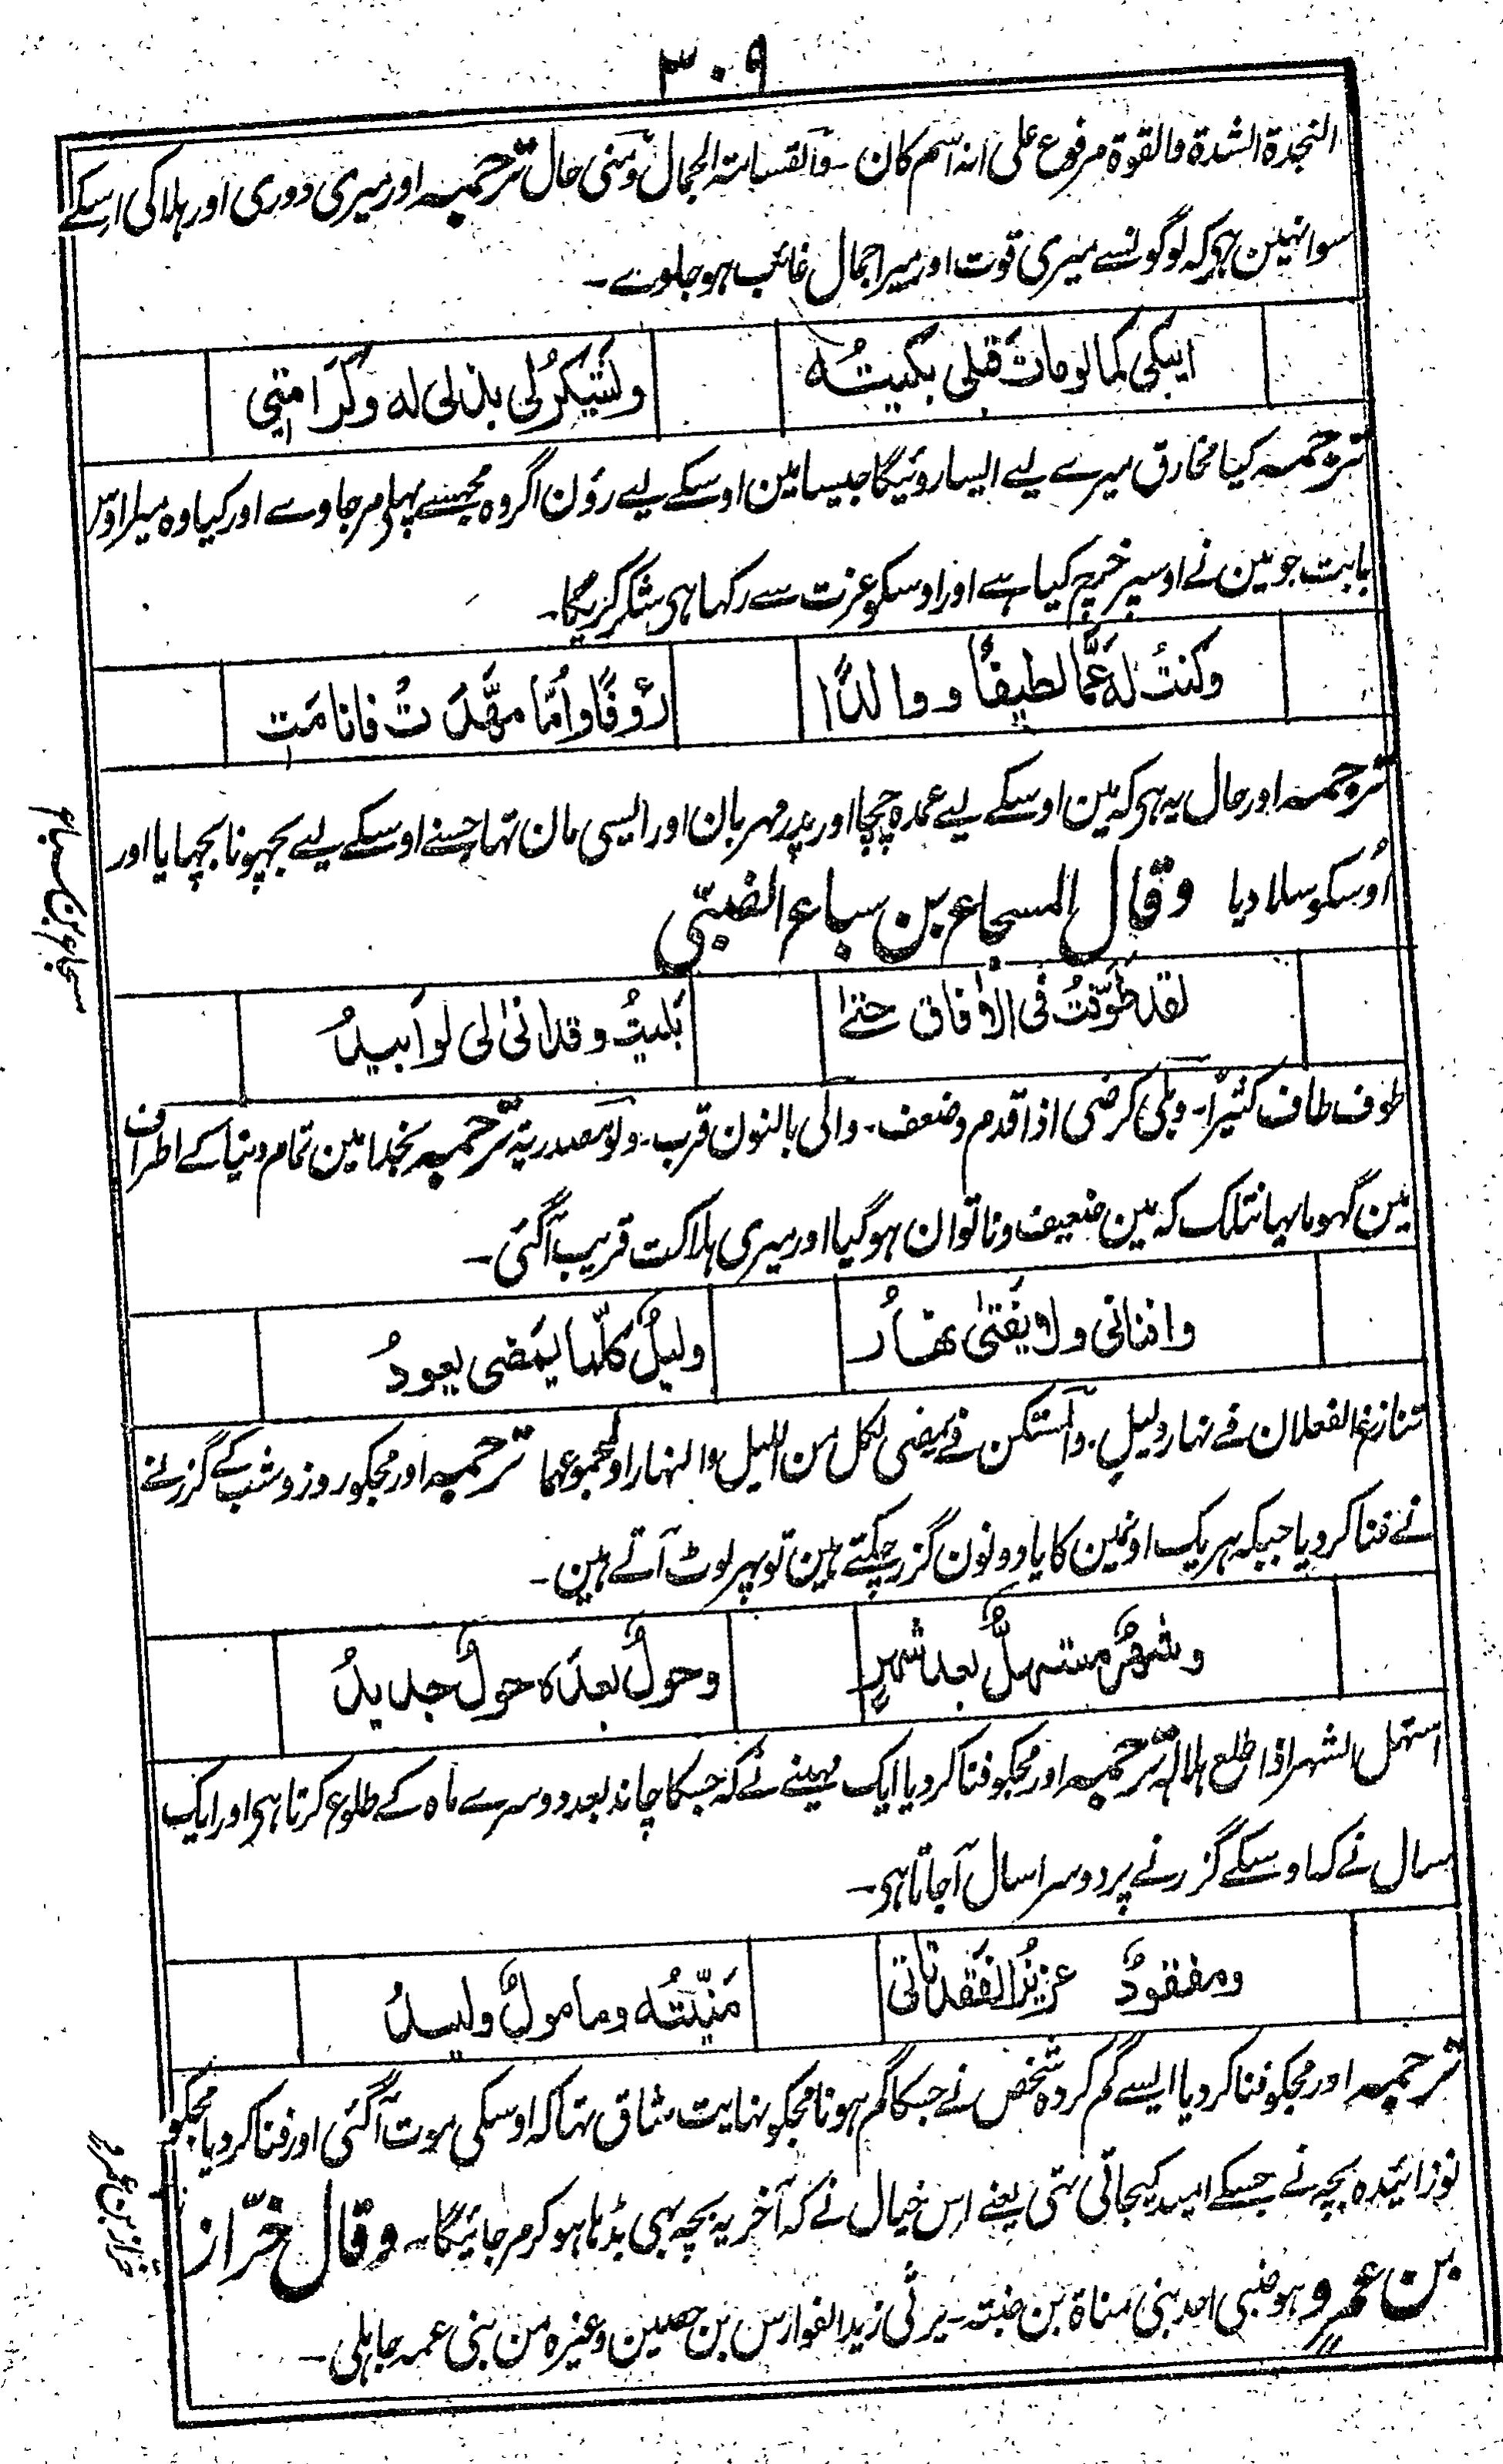 ۳۰۹
النجدة الشدة والقوة مرفوع علی انہ اسم کان ۔ والقسامۃ الجمال ومنی حال ترجمہ اور میری دوری اور ہلاکی اسکے
سوا نہین ہی کہ لوگونسے میری قوت اور میرا جمال غائب ہو جاوے ۔
ایبکی کما لو مات قبلی بکیتُہ
ولیشکرُ لی بذلی لہ وکرامتی
ترجمہ کیا مخارق میرے لیے ایسا روئیگا جیسا مین اوسکے لیے رؤن اگر وہ مجھسے پہلے مر جاوے اور کیا وہ میرا اوس
بابت جو مین نے اوسپر خرچ کیا ہے اور اوسکو عزت سے رکھا ہی شکر کریگا۔
وکنتُ لہ عمًّا لطیفًا ووالدًا
رؤوفًا وامًّا مھّدَتْ فانامَتِ
ترجمہ اور حال یہ ہی کہ مین اوسکے لیے عمدہ چچا اور پدر مہربان اور ایسی مان تھا جسنے اوسکے لیے بچھونا بچھایا اور
اُوسکو سلا دیا وقال المسجاع بن سباع الضبّی
مسجاع بن سباع
لقد طوّفتُ فی الآفاق حتےٰ
بَلیتُ وقد انیٰ لی لو ابیدُ
طوف طاف کثیرًا۔ وبلی کرضی اذا قدم وضعف ۔ وانی بالنون قرب ۔ ولو مصدریۃ ترجمہ بخدا مین تمام دنیا کے اطراف
مین گھوما یہانتلک کہ مین ضعیف وناتوان ہوگیا اور میری ہلاکت قریب آگئی ۔
وافنانی ولا یَفنیٰ نھارُ
ولیلُ کلّما یمضی یعودُ
تنازع الفعلان فے نہار ولیلٍ ۔ والمستکن فے یمضی لکل من اللیل والنہار او لمجموعہما ترجمہ اور مجکو روز وشب کے گزرنے
نے فنا کر دیا جبکہ ہر یک اونمین کا یا دونون گزر چکتے ہین تو پہر لوٹ آتے ہین ۔
وشھرٌ مستہلٌّ بعد شھرٍ
وحولٌ بعدہ حولٌ جدیدُ
استہل الشہر اذا طلع ہلالہ ترجمہ اور مجکو فنا کر دیا ایک مہینے نے کہ جسکا چاند بعد دوسرے ماہ کے طلوع کرتا ہی اور ایک
سال نے کہ اوسکے گزرنے پر دوسرا سال آجاتا ہی ۔
ومفقودٌ عزیزُ الفَقد تاتی
مَنیّتُہ ومامولٌ ولیدُ
ترجمہ اور مجکو فنا کر دیا ایسے گم کردہ شخص نے جسکا گم ہونا مجکو نہایت شاق تہا کہ اوسکی موت آگئی اور فنا کر دیا مجکو
نوزائیدہ بچہ نے جسکے امید کیجاتی تہی یعنے اس خیال نے کہ آخر یہ بچہ بہی بڈہا ہوکر مر جائیگا ۔ وقال خرّاز
خراز بن عمرو
بن عمرٍو وہو ضبی احد بنی مناة بن ضبتہ ۔ یرثی زید الفوارس بن حصین وغیرہ من بنی عمہ جاہلی ۔